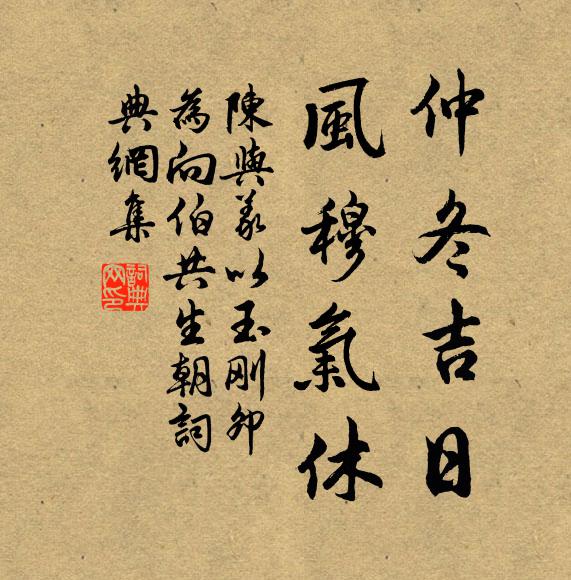 仲冬吉日
風穆氣休
陳與義以玉剛卯
為向伯共生朝詞
典網集
詞典網印